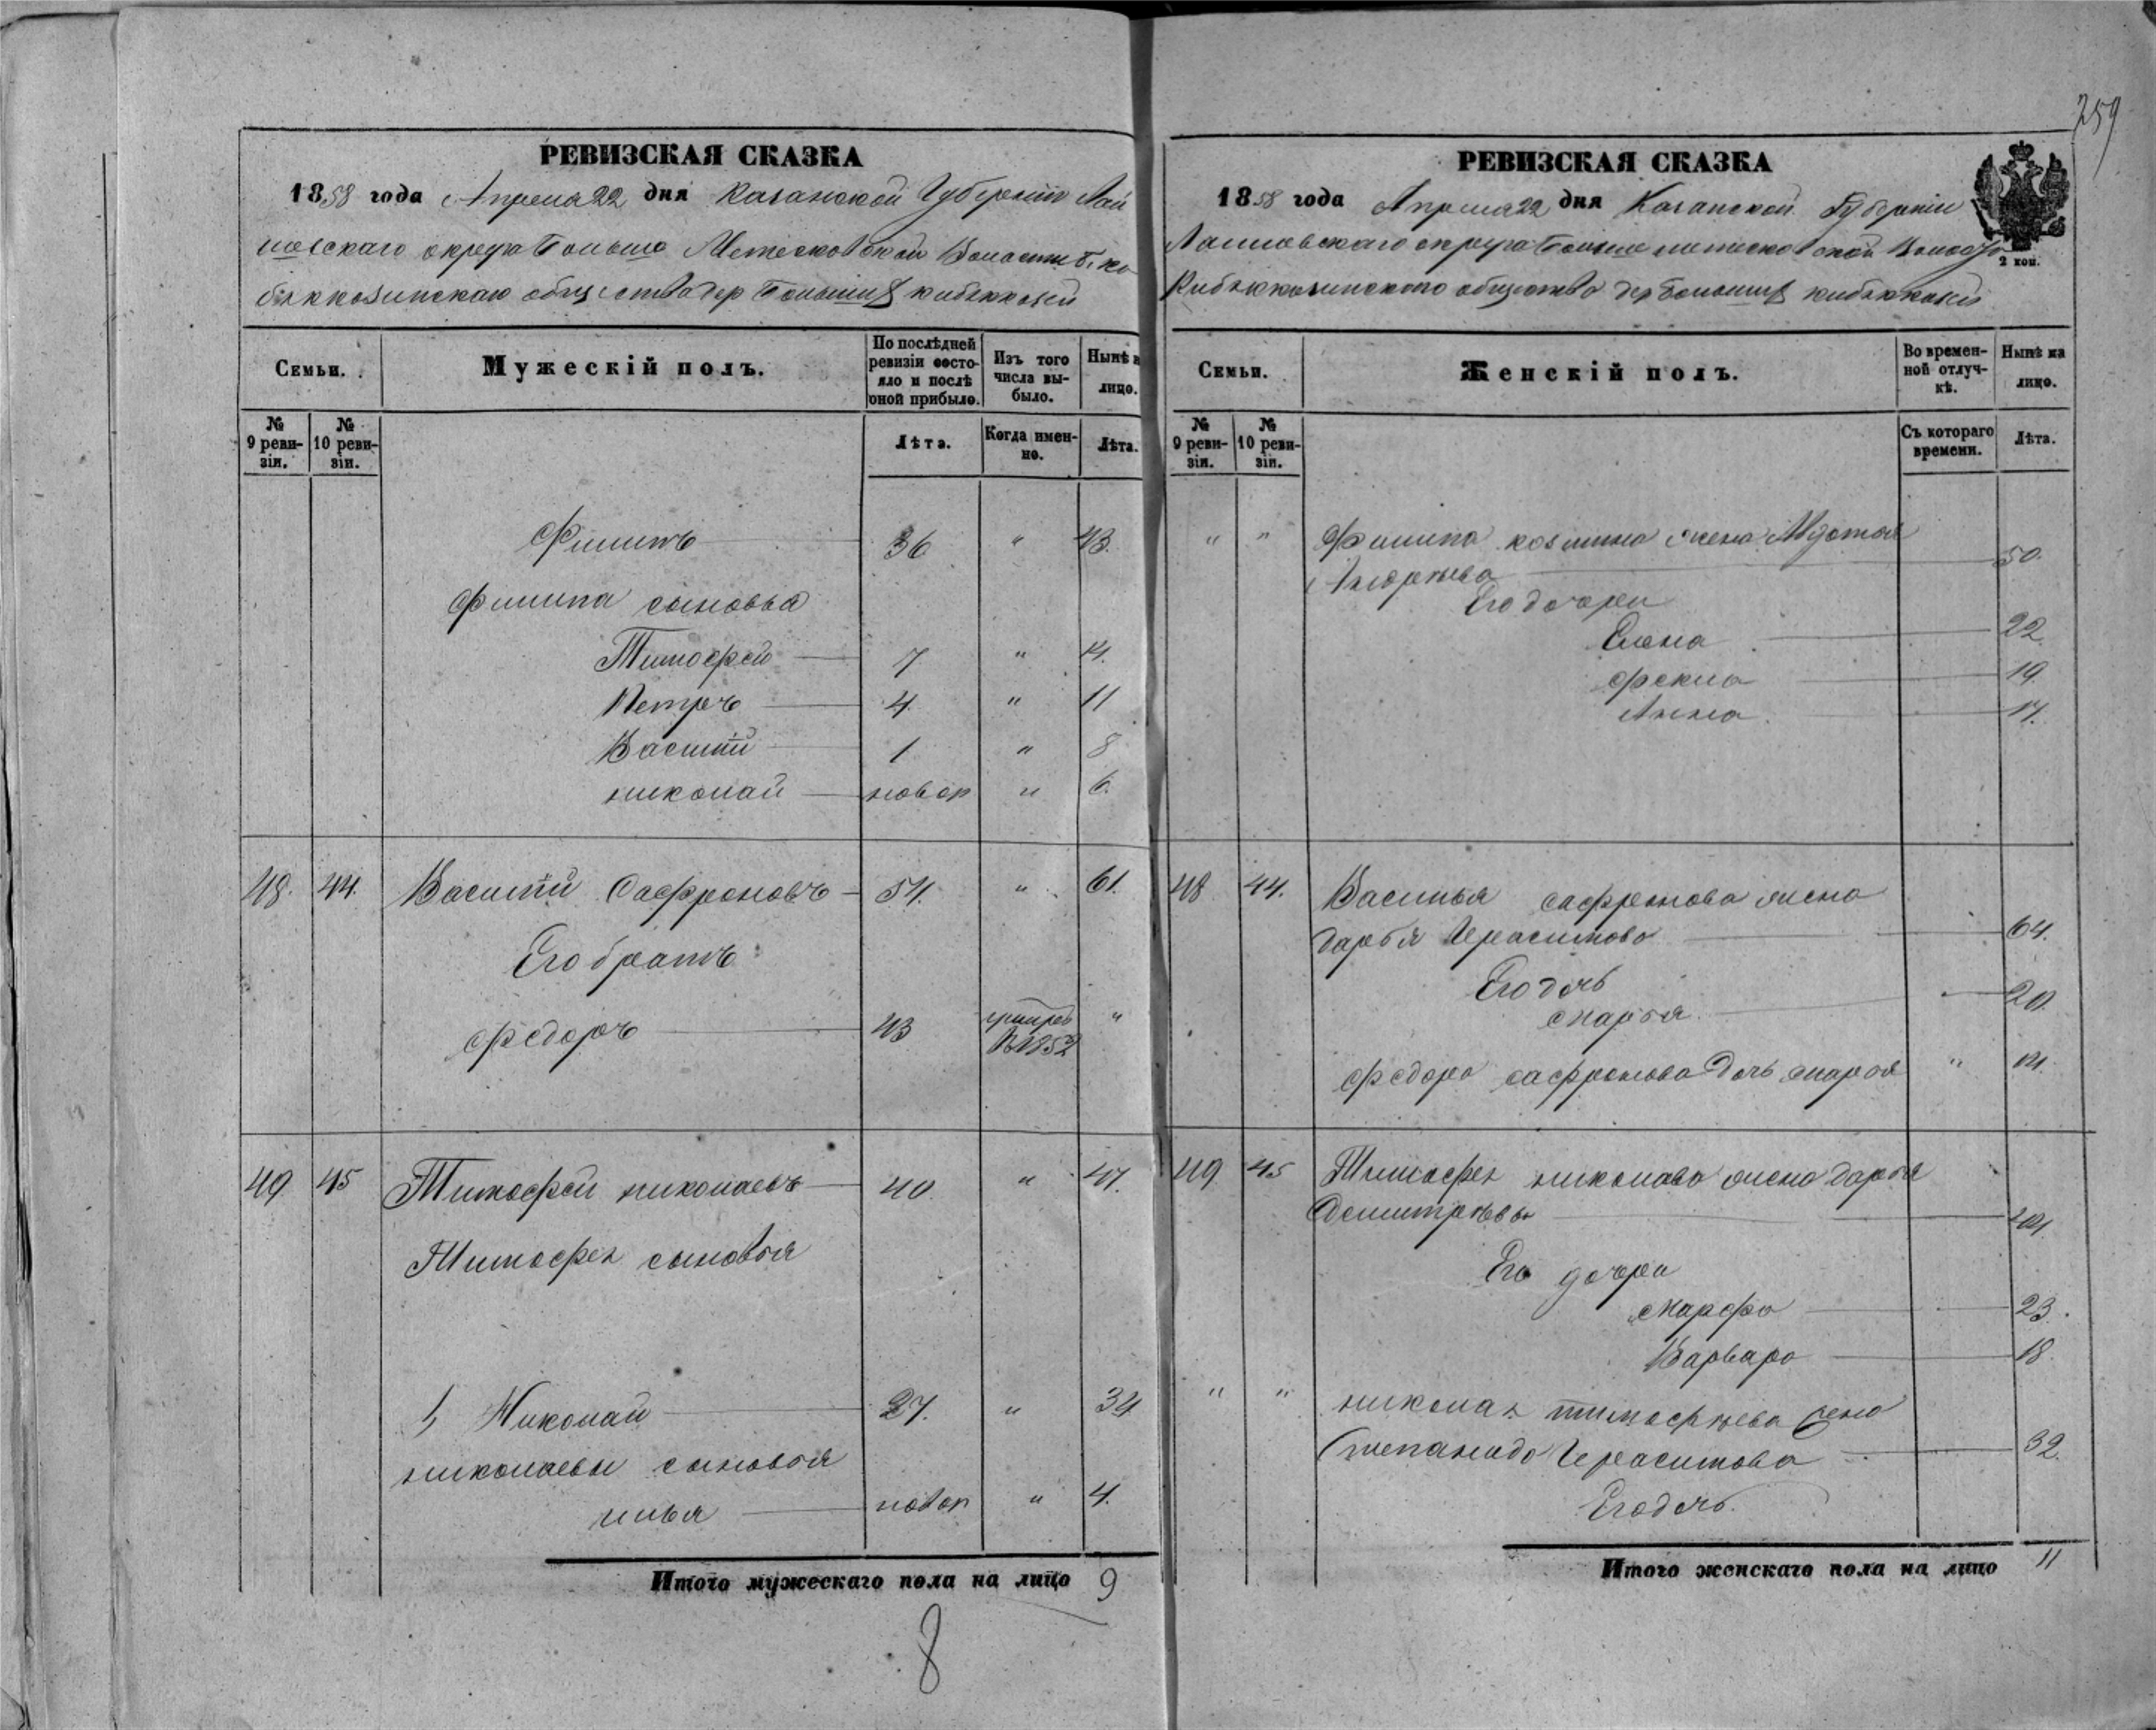 259
РЕВИЗСКАЯ СКАЗКА
1858 года Апреля 22 дня Казанской Губернiи Лаи
шевскаго округа Больше Метесковской Волости Б. Ки
бяккозинскаго общества дер Большихъ кибяккозей
Семьи. Мужескiй полъ. По послѣдней ревизiи состояло и послѣ оной прибыло. Изъ того числа выбыло. Нынѣ на лицо.
№ 9 ревизiи. № 10 ревизiи. Лѣта. Когда именно. Лѣта.
Филипъ 36 " 43.
Филипа сыновья
Тимофей 7 " 14.
Петръ 4 " 11
Василiй 1 " 8
николай новор " 6.
48. 44. Василiй Сафроновъ 54. " 61.
Его братъ
Федоръ 43 умре въ 1852 "
49 45 Тимофей николаевъ 40 " 47.
Тимофея сыновья
1, Николай 27. " 34
николаевы сыновья
илья новор " 4.
Итого мужескаго пола на лицо 9
8
РЕВИЗСКАЯ СКАЗКА
1858 года Апреля 22 дня Казанской Губернiи
Лаишевскаго округа Больше метесковской Волости
Кибяккозинскаго общества дер Большихъ кибяккозей
2 коп.
Семьи. Женскiй полъ. Во временной отлучкѣ. Нынѣ на лицо.
№ 9 ревизiи. № 10 ревизiи. Съ котораго времени. Лѣта.
" " Филипа козмина жена
50.
Его дочери
Елена 22
Фекла 19
Анна 17.
48 44. Василья сафронова жена
дарья Герасимова 64.
Его дочь
марья 20
Федора сафронова дочь марья " 14
49 45 Тимофея николаева жена дарья
Дмитрѣева
Его дочери
марфа 23.
Варвара 18
" " николая тимофѣева жена
Степанида Герасимова 32.
Его дочь.
Итого женскаго пола на лицо 11